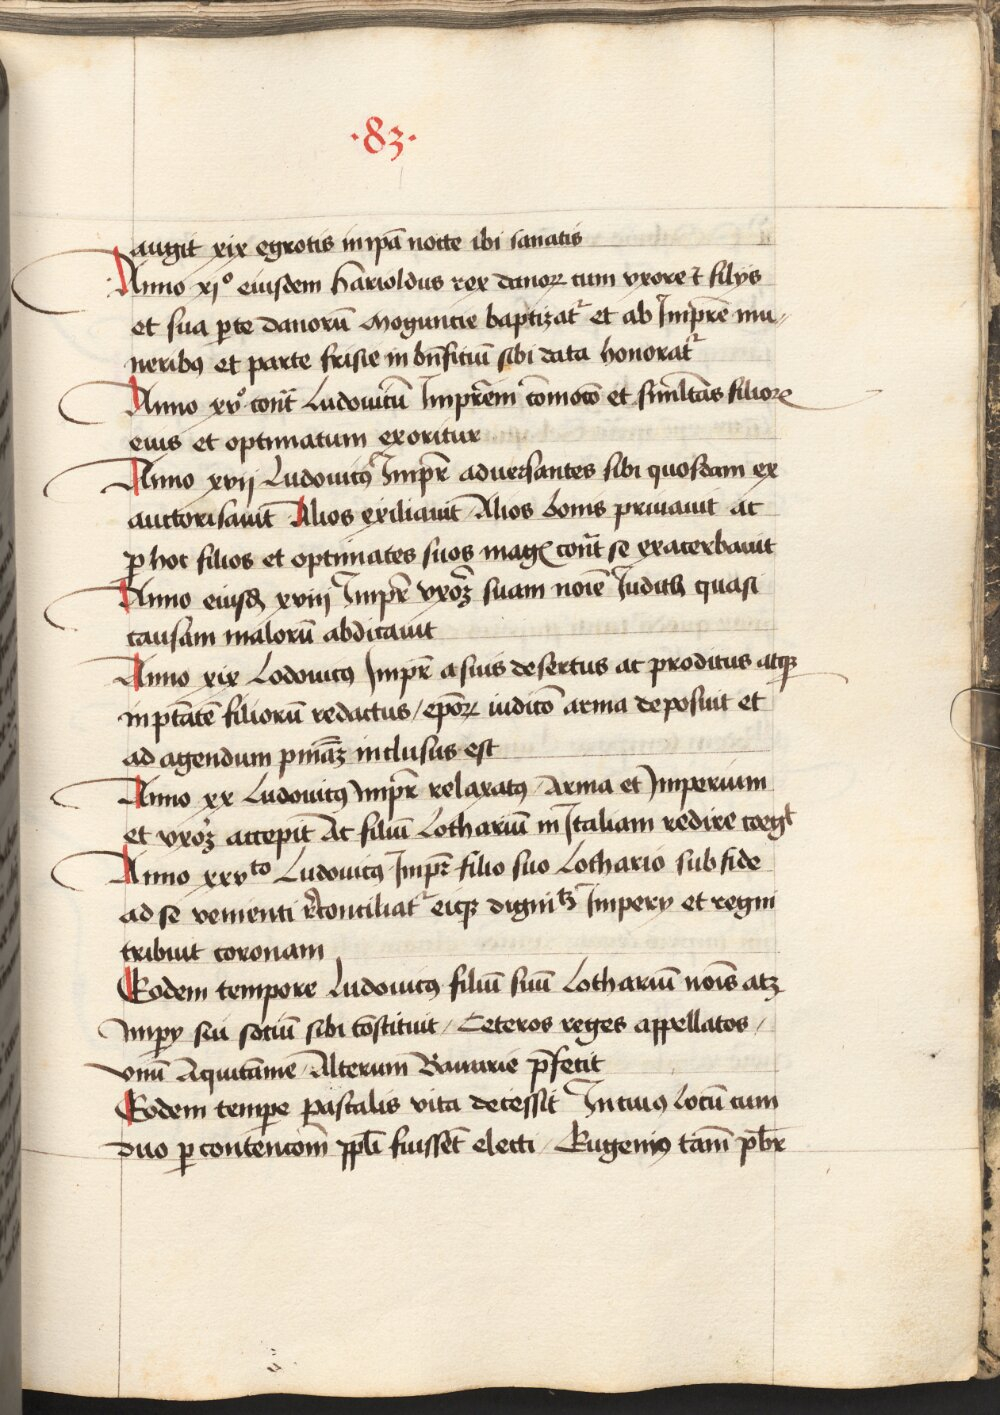 ·83·
augit xix egrotis in ip̄a nocte ibi sanatis
Anno xjº eiusdem Harioldus rex danoꝝ cum vxore ⁊ filijs
et sua ꝑte danorū Moguncie baptizat᷑ et ab Imꝑe mu⸗
neribꝯ et parte frisie in bn̄ficiū sibi data honorat᷑
Anno xvº cont᷑ Ludouicū Impr̄em cōmoco et simlt̄as filioꝝ
eius et optimatum exoritur
Anno xvij Ludouicꝯ Impr̄ aduersantes sibi quosdam ex
auctorisauit Alios exiliauit Alios bonis priuauit ac
ꝑ hoc filios et optimates suos magꝭ cont᷑ se exacerbauit
Anno eiusd᷒ xviij Impr̄ vxoꝫ suam noīe Judith quasi
causam malorū abdicauit
Anno xix Lodouicꝯ Impr̄ a suis desertus ac proditus atqꝫ
in ptātē filiorū redactus / epōꝝ iudicō arma deposuit et
ad agendum pnīaꝫ inclusus est
Anno xx Ludouicꝯ Impr̄ relaxatꝯ Arma et Imperium
et vxoꝫ accepit Ac filiū Lothariū in Italiam redire coegᵗ
Anno xxvᵗᵒ Ludouicꝯ Impr̄ filio suo Lothario sub fide
ad se venienti rͤconciliat᷑ eiqꝫ dignitꝫ Imperij et regni
tribuit coronam
Eodem tempore Ludouicꝯ filiū suū Lothariū nois̄ atqꝫ
Imꝑij sui sociū sibi cōstituit / Ceteros reges appellatos /
vnū Aquitanie Alterum Bauarie p̄fecit
Eodem temꝑe pascalis vita decessit In cuiꝯ locū cum
duo ꝑ contencōm ppl̄i fuissēt electi / Eugeniꝯ tam̄ pb̄r